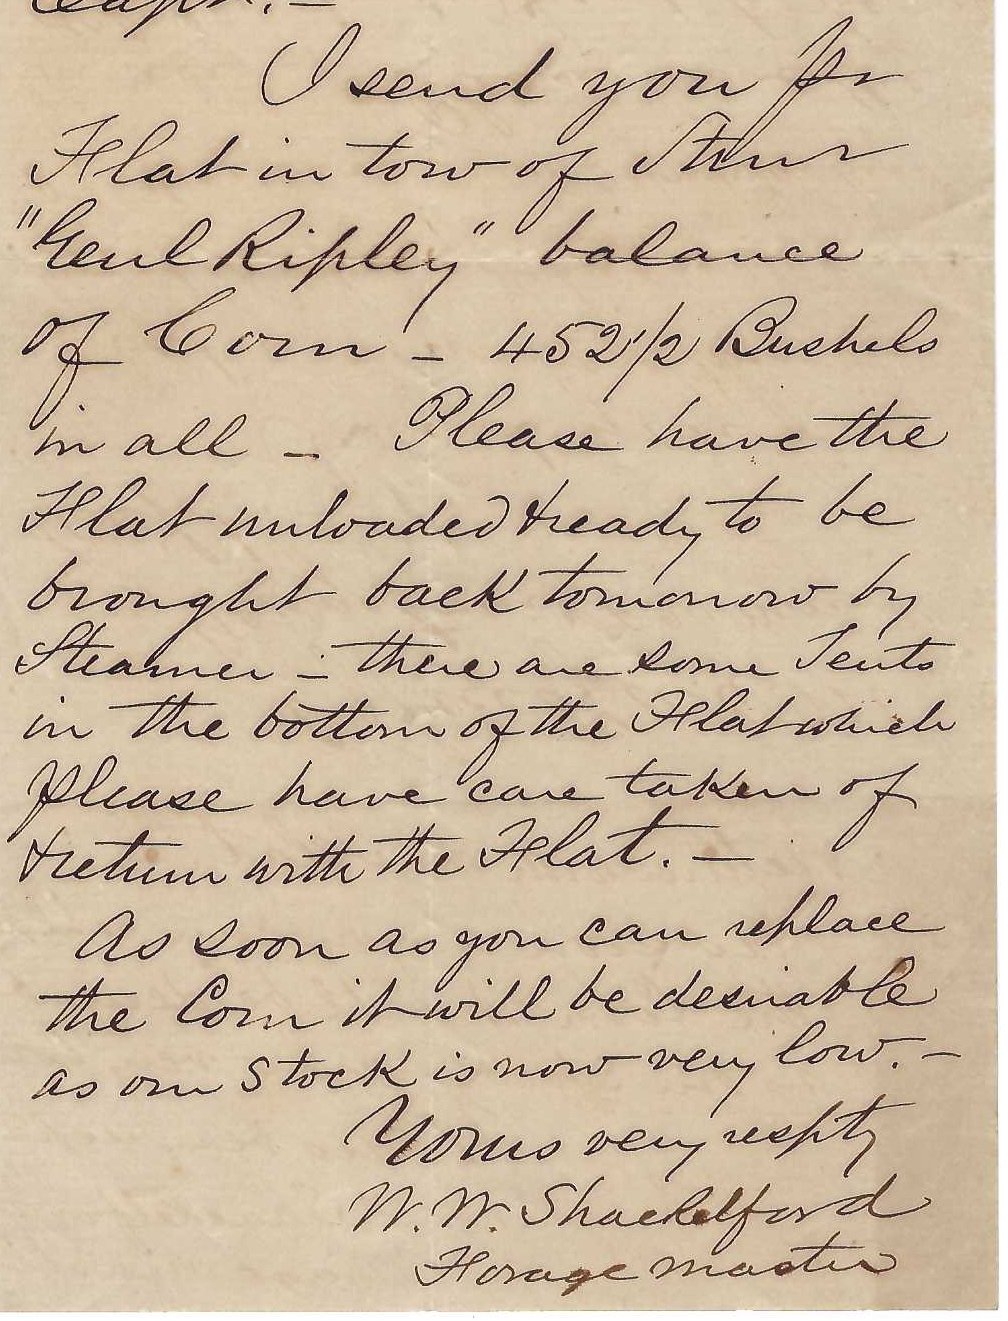 Capt. —
I send you Pr
Flat in tow of Stmr
"Genl Ripley" balance
of Corn — 452 1/2 Bushels
in all — Please have the
Flat unloaded & ready to be
brought back tomorrow by
Steamer — there are some Tents
in the bottom of the Flat which
Please have care taken of
& return with the Flat. —
As soon as you can replace
the Corn it will be desirable
as our Stock is now very low. —
Yours very respty
W. W. Shackelford
Forage master